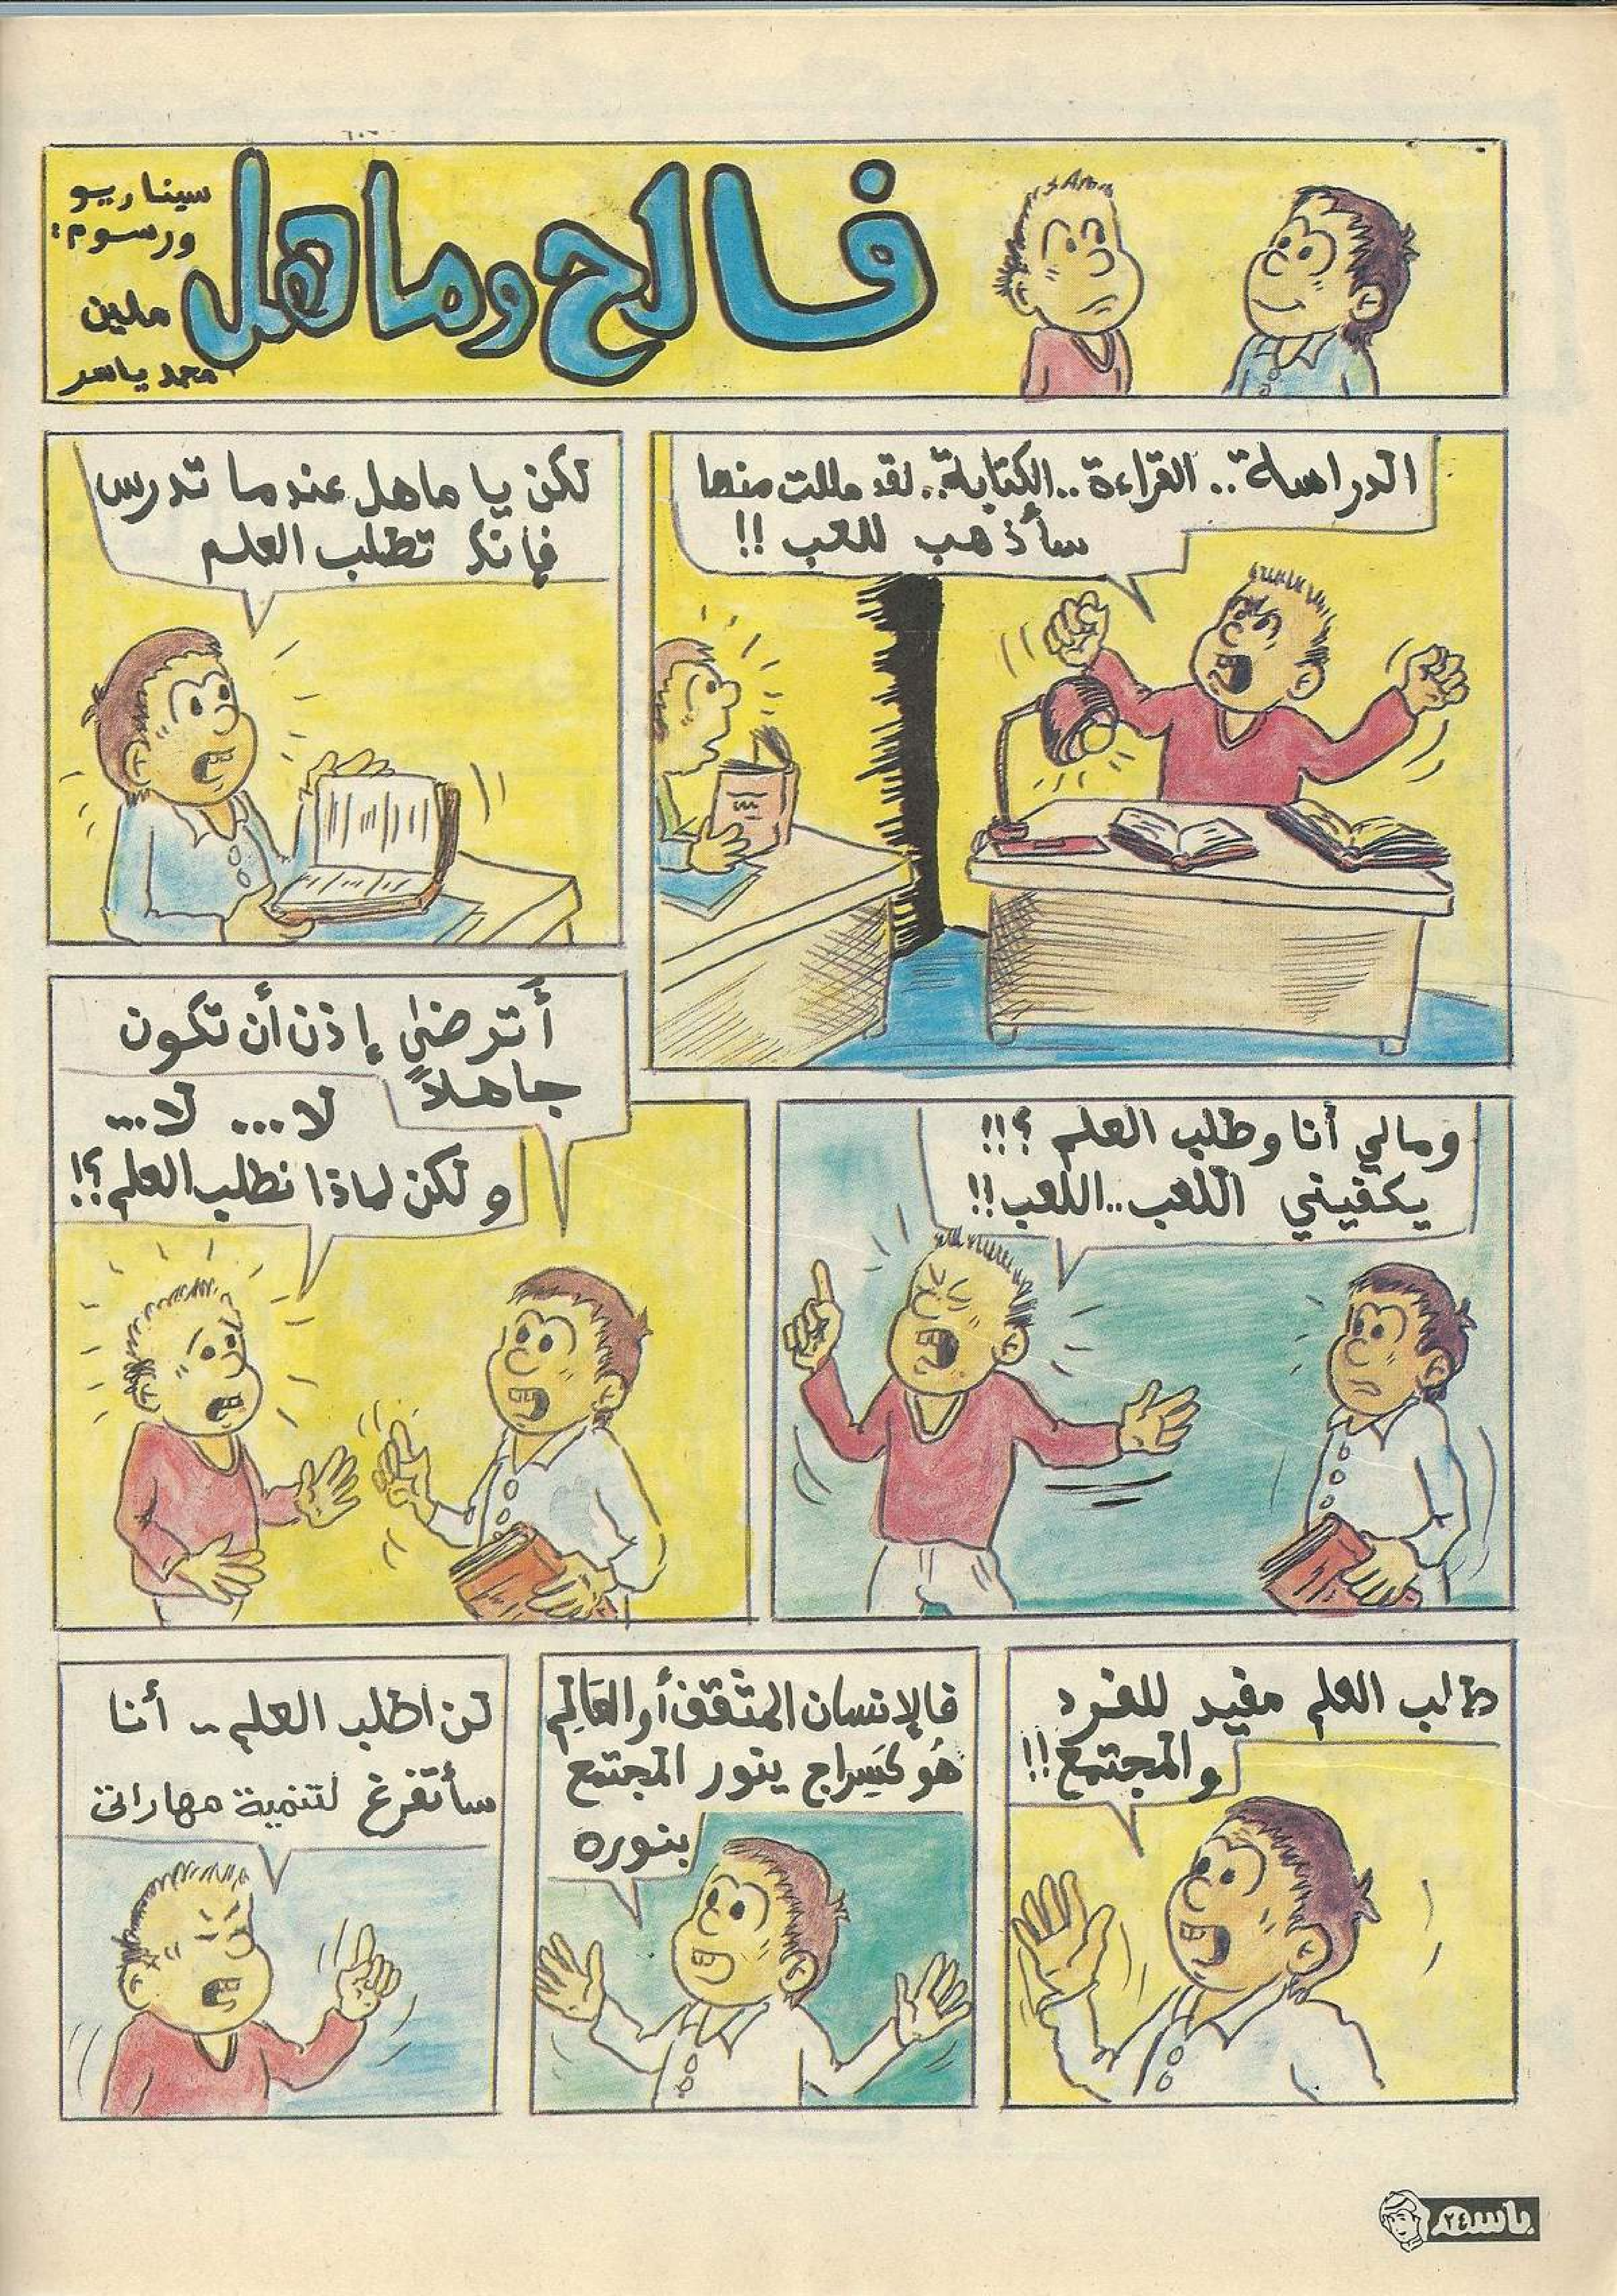 فالح وماهل
سيناريو
ورسوم:
ملين
محمد ياسر
الدراسة.. القراءة.. الكتابة.. لقد مللت منها
سأذهب للعب !!
لكن يا ماهل عندما تدرس
فإنك تطلب العلم
ومالي أنا وطلب العلم ؟!!
يكفيني اللعب.. اللعب!!
أترضىٰ إذن أن تكون
جاهلاً
لا... لا...
ولكن لماذا نطلب العلم؟!
طلب العلم مفيد للفرد
والمجتمع!!
فالإنسان المثقف أو العَالِم
هُو كَسِراج ينور المجتمع
بنوره
لن اطلب العلم.. أنا
سأتفرغ لتنمية مهاراتي
باسم
٢٤